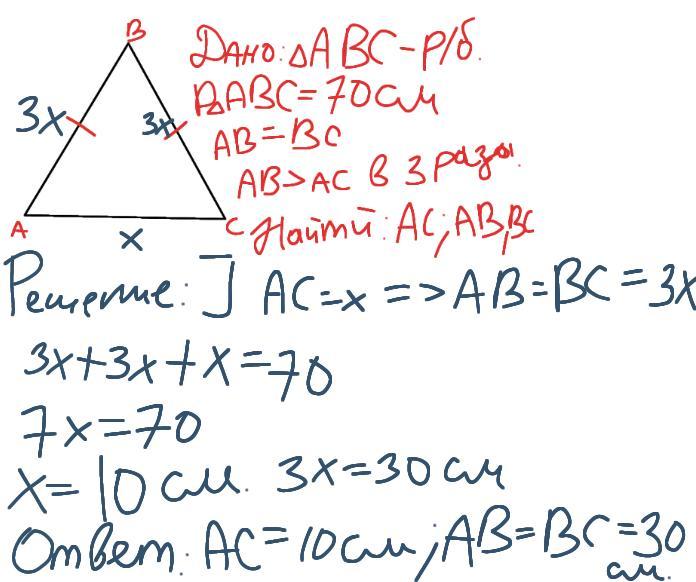 B
Дано: △ABC – р/б.
P△ABC = 70 см
3x
3x
AB = BC
AB > AC в 3 раза.
A
C
x
Найти: AC; AB, BC
Решение: ] AC = x => AB = BC = 3x
3x + 3x + x = 70
7x = 70
x = 10 см. 3x = 30 см
Ответ: AC = 10 см; AB = BC = 30
см.